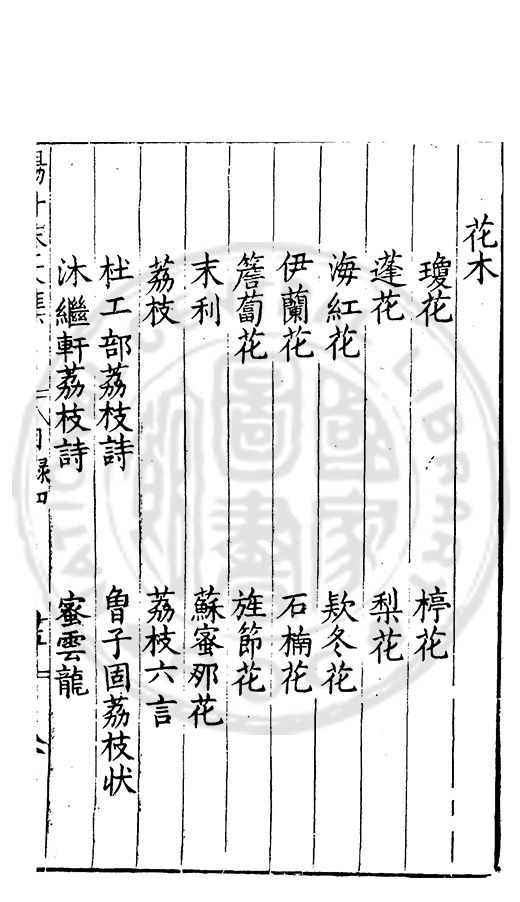 花木
瓊花　楟花
蓬花　梨花
海紅花　欵冬花
伊蘭花　石楠花
簷蔔花　旌節花
末利　蘇蜜那花
荔枝　荔枝六言
杜工部荔枝詩　曾子固荔枝状
沐繼軒荔枝詩　蜜雲龍